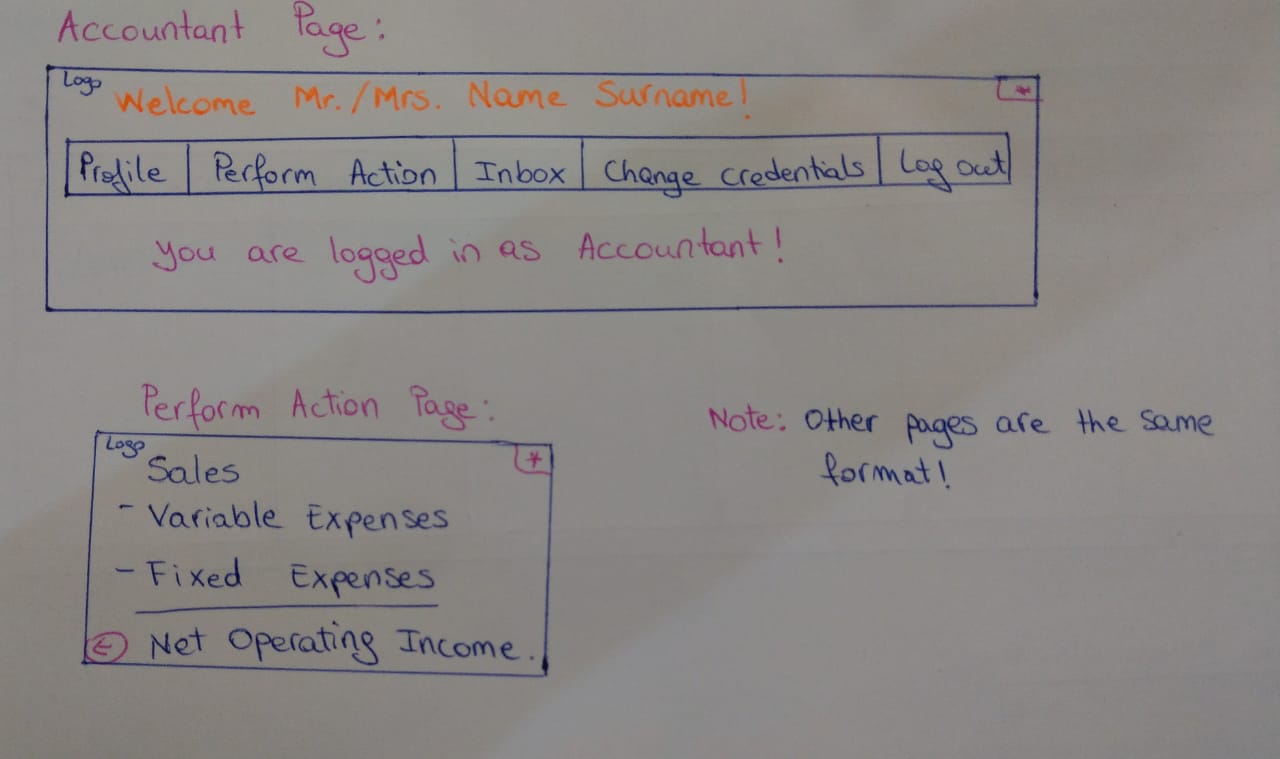 Accountant Page:
Logo
Welcome Mr./Mrs. Name Surname!
*
Profile
Perform Action
Inbox
Change credentials
Log out
you are logged in as Accountant!
Perform Action Page:
Logo
*
Sales
- Variable Expenses
- Fixed Expenses
Net Operating Income.
Note: Other pages are the same
format!